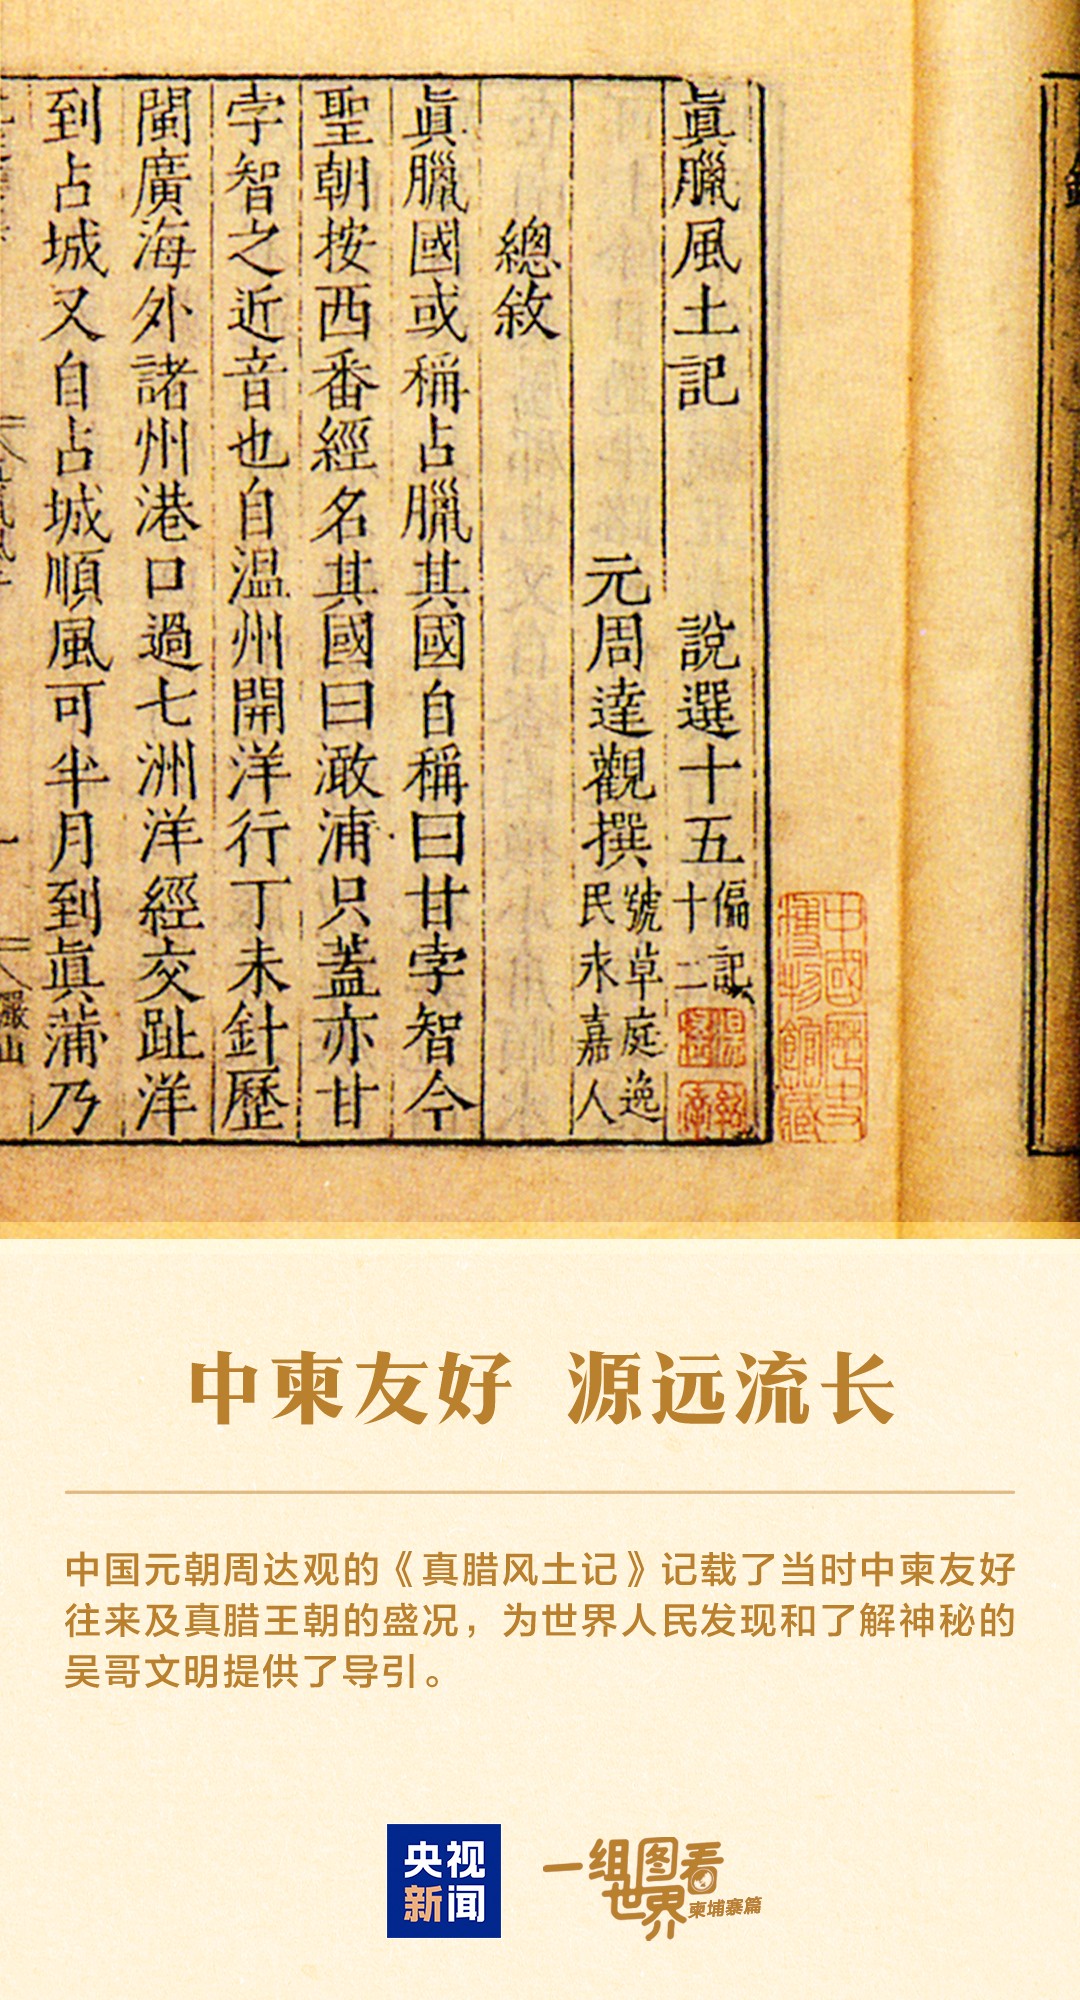 眞臘風土記 說選十五 偏記十二
元周達觀撰 號草庭逸民永嘉人
總敘
眞臘國或稱占臘其國自稱曰甘孛智今
聖朝按西番經名其國曰澉浦只蓋亦甘
孛智之近音也自温州開洋行丁未針歷
閩廣海外諸州港口過七洲洋經交趾洋
到占城又自占城順風可半月到眞蒲乃
中國歷史博物館藏
中柬友好 源远流长
中国元朝周达观的《真腊风土记》记载了当时中柬友好
往来及真腊王朝的盛况，为世界人民发现和了解神秘的
吴哥文明提供了导引。
央视
新闻
一组图看
世界
柬埔寨篇